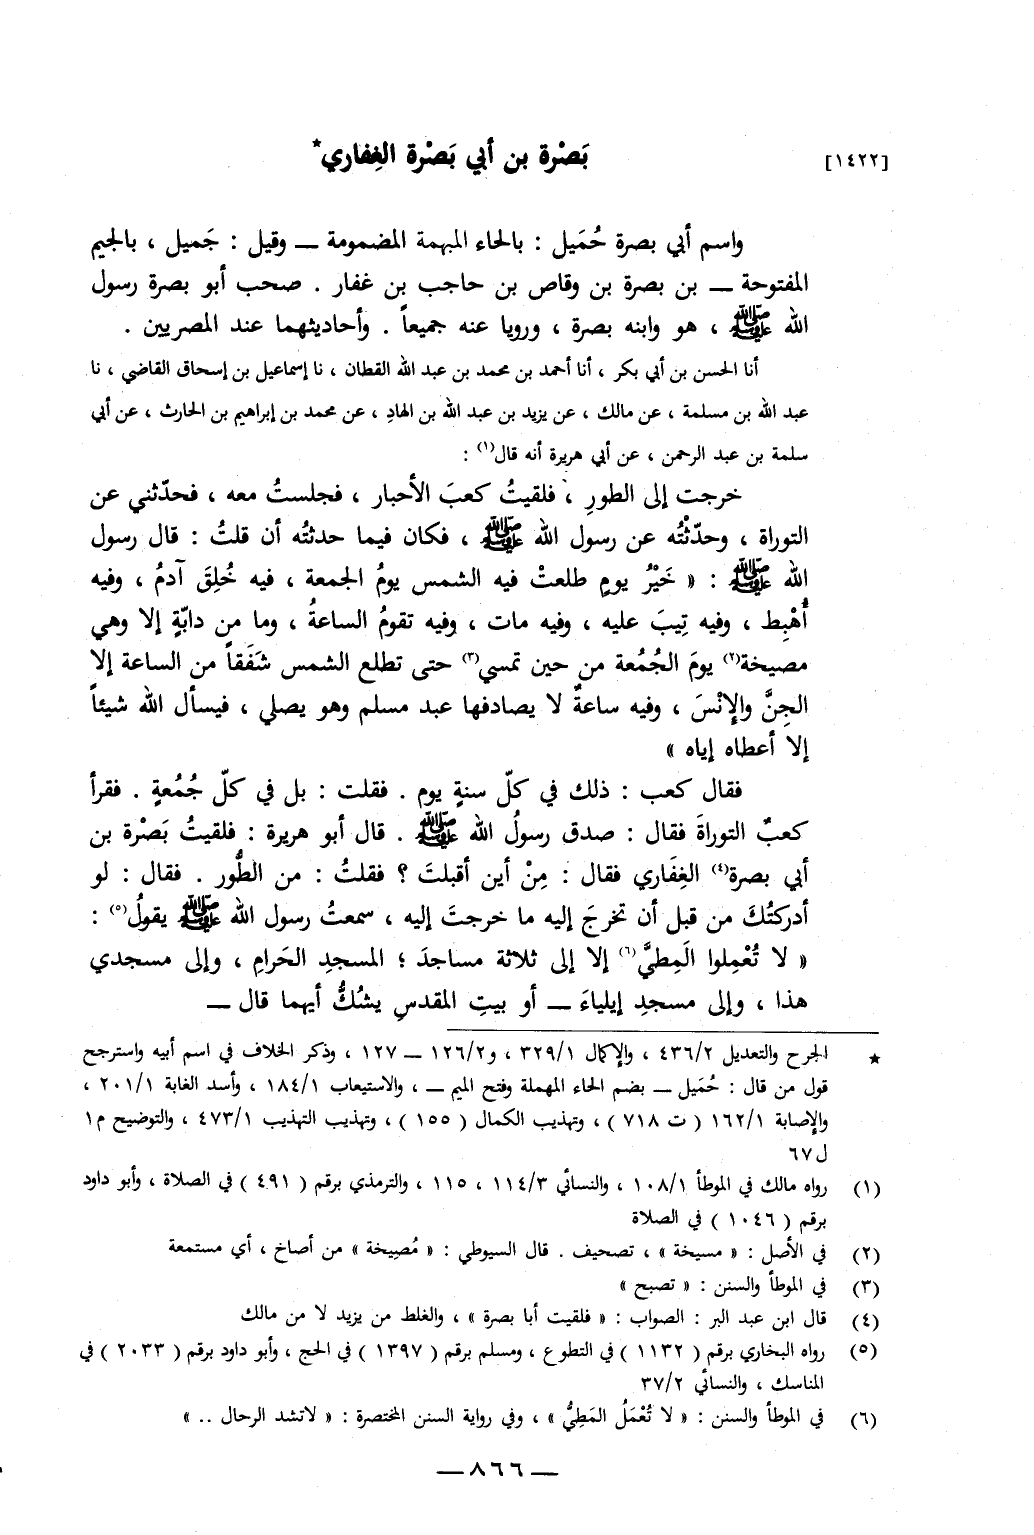 [١٤٢٢] بَصْرة بن أبي بَصْرة الغِفاري*
واسم أبي بصرة حُمَيل : بالحاء المبهمة المضمومة — وقيل : جَميل ، بالجيم
المفتوحة — بن بصرة بن وقاص بن حاجب بن غفار . صحب أبو بصرة رسول
الله ﷺ ، هو وابنه بصرة ، ورويا عنه جميعاً . وأحاديثهما عند المصريين .
أنا الحسن بن أبي بكر ، أنا أحمد بن محمد بن عبد الله القطان ، نا إسماعيل بن إسحاق القاضي ، نا
عبد الله بن مسلمة ، عن مالك ، عن يزيد بن عبد الله بن الهادِ ، عن محمد بن إبراهيم بن الحارث ، عن أبي
سلمة بن عبد الرحمن ، عن أبي هريرة أنه قال(١) :
خرجت إلى الطورِ ، فلقيتُ كعبَ الأحبار ، فجلستُ معه ، فحدّثني عن
التوراة ، وحدّثْتُه عن رسول الله ﷺ ، فكان فيما حدثتُه أن قلتُ : قال رسول
الله ﷺ : « خَيْرُ يومٍ طلعتْ فيه الشمس يومُ الجمعة ، فيه خُلِقَ آدمُ ، وفيه
أُهْبِط ، وفيه تِيبَ عليه ، وفيه مات ، وفيه تقومُ الساعةُ ، وما من دابّةٍ إلا وهي
مصيخة(٢) يومَ الجُمُعة من حين تمسي(٣) حتى تطلع الشمس شَفَقاً من الساعة إلا
الجِنَّ والإنْسَ ، وفيه ساعةٌ لا يصادفها عبد مسلم وهو يصلي ، فيسأل الله شيئاً
إلا أعطاه إياه »
فقال كعب : ذلك في كلّ سنةٍ يوم . فقلت : بل في كلّ جُمُعةٍ . فقرأ
كعبٌ التوراةَ فقال : صدق رسولُ الله ﷺ . قال أبو هريرة : فلقيتُ بَصْرة بن
أبي بصرة(٤) الغِفَاري فقال : مِنْ أين أقبلتَ ؟ فقلتُ : من الطُّور . فقال : لو
أدركتُكَ من قبل أن تخرجَ إليه ما خرجتَ إليه ، سمعتُ رسول الله ﷺ يقولُ(٥) :
« لا تُعْمِلوا المَطِيَّ(٦) إلا إلى ثلاثة مساجدَ ؛ المسجدِ الحَرامِ ، وإلى مسجدي
هذا ، وإلى مسجدِ إيلياءَ — أو بيتِ المقدسِ يشكُّ أيهما قال —
* الجرح والتعديل ٤٣٦/٢ ، والإكمال ٣٢٩/١ ، و١٢٦/٢ — ١٢٧ ، وذكر الخلاف في اسم أبيه واسترجح
قول من قال : حُمَيل — بضم الحاء المهملة وفتح الميم — ، والاستيعاب ١٨٤/١ ، وأسد الغابة ٢٠١/١ ،
والإصابة ١٦٢/١ ( ت ٧١٨ ) ، وتهذيب الكمال ( ١٥٥ ) ، وتهذيب التهذيب ٤٧٣/١ ، والتوضيح م١
ل٦٧
(١) رواه مالك في الموطأ ١٠٨/١ ، والنسائي ١١٤/٣ ، ١١٥ ، والترمذي برقم ( ٤٩١ ) في الصلاة ، وأبو داود
برقم ( ١٠٤٦ ) في الصلاة
(٢) في الأصل : « مسيخة » ، تصحيف . قال السيوطي : « مُصِيخة » من أصاخ ، أي مستمعة
(٣) في الموطأ والسنن : « تصبح »
(٤) قال ابن عبد البر : الصواب : « فلقيت أبا بصرة » ، والغلط من يزيد لا من مالك
(٥) رواه البخاري برقم ( ١١٣٢ ) في التطوع ، ومسلم برقم ( ١٣٩٧ ) في الحج ، وأبو داود برقم ( ٢٠٣٣ ) في
المناسك ، والنسائي ٣٧/٢
(٦) في الموطأ والسنن : « لا تُعْمَلُ المَطِيُّ » ، وفي رواية السنن المختصرة : « لاتشد الرحال .. »
— ٨٦٦ —